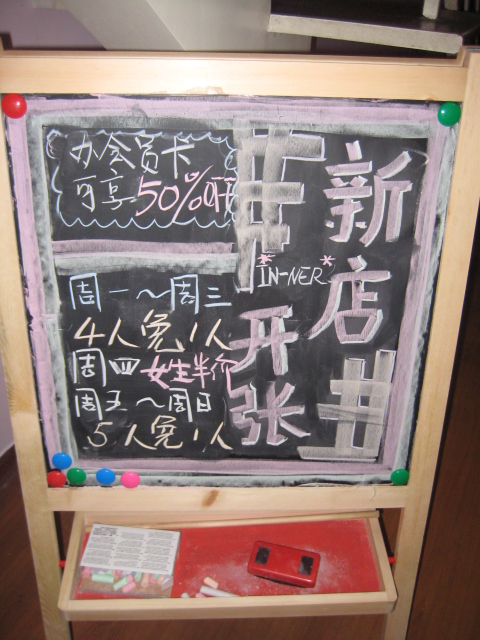 办会员卡
可享50%
新店
IN-NER
开张
周一~周三
4人免1人
周四 女生半价
周五~周日
5人免1人